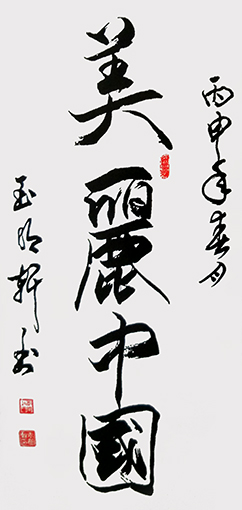 丙申年春月
美麗中國
玉明軒書